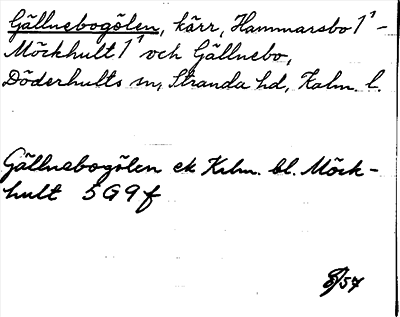 Gällnebogölen, kärr, Hammarsbo 1¹ -
Möckhult 1¹ och Gällnebo,
Döderhults sn, Stranda hd, Kalm. l.
Gällnebogölen ek Krlm. bl. Möck-
hult 5G9f
8/57